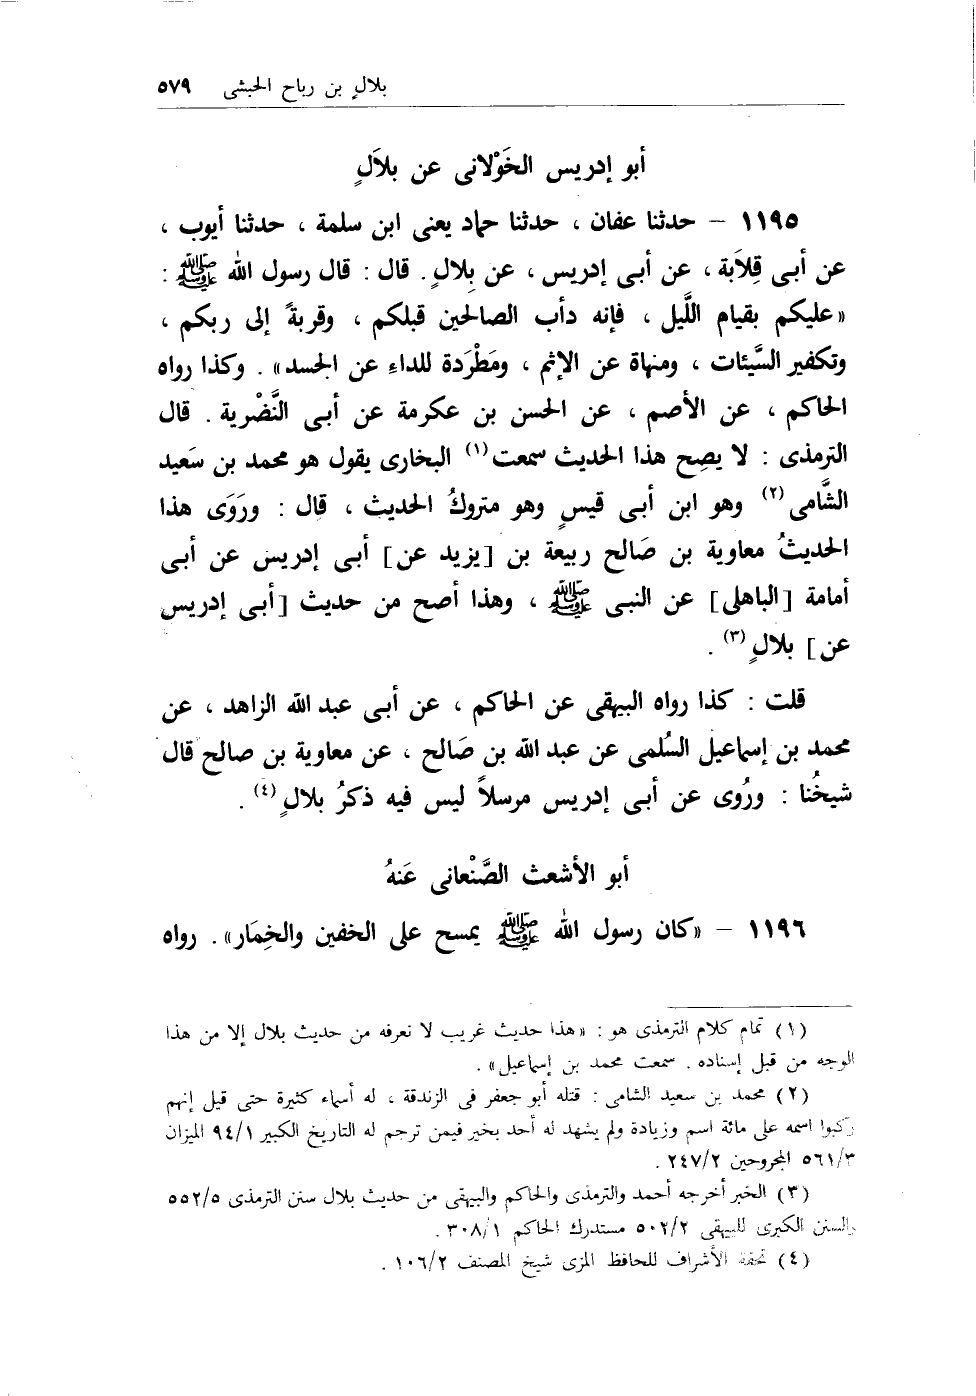 بلال بن رباح الحبشى ٥٧٩
أبو إدريس الخَوْلانى عن بلاَلٍ
١١٩٥ – حدثنا عفان ، حدثنا حماد يعنى ابن سلمة ، حدثنا أيوب ،
عن أبى قِلاَبة ، عن أبى إدريس ، عن بِلالٍ . قال : قال رسول الله ﷺ :
«عليكم بقيام اللَّيل ، فإنه دأب الصالحين قبلكم ، وقربةً إلى ربكم ،
وتكفير السَّيئات ، ومنهاة عن الإثم ، ومَطْرَدة للداءِ عن الجسد» . وكذا رواه
الحاكم ، عن الأصم ، عن الحسن بن عكرمة عن أبى النَّضْرية . قال
الترمذى : لا يصِح هذا الحديث سمعت(١) البخارى يقول هو محمد بن سَعيد
الشَّامى(٢) وهو ابن أبى قيسٍ وهو متروكُ الحديث ، قال : ورَوَى هذا
الحديثُ معاوية بن صَالح ربيعة بن [يزيد عن] أبى إدريس عن أبى
أمامة [الباهلى] عن النبى ﷺ ، وهذا أصح من حديث [أبى إدريس
عن] بلالٍ(٣) .
قلت : كذا رواه البيهقى عن الحاكم ، عن أبى عبد الله الزاهد ، عن
محمد بن إسماعيل السُلمى عن عبد الله بن صَالح ، عن معاوية بن صالح قال
شيخُنا : ورُوى عن أبى إدريس مرسلاً ليس فيه ذكرُ بلالٍ(٤) .
أبو الأشعث الصَّنْعانى عَنهُ
١١٩٦ – «كان رسول الله ﷺ يمسح على الخفين والخِمَار» . رواه
(١) تمام كلام الترمذى هو : «هذا حديث غريب لا نعرفه من حديث بلال إلا من هذا
الوجه من قبل إسناده . سمعت محمد بن إسماعيل» .
(٢) محمد بن سعيد الشامى : قتله أبو جعفر فى الزندقة ، له أسماء كثيرة حتى قيل إنهم
ركبوا اسمه على مائة اسم وزيادة ولم يشهد له أحد بخير فيمن ترجم له التاريخ الكبير ٩٤/١ الميزان
٥٦١/٣ المجروحين ٢٤٧/٢ .
(٣) الخبر أخرجه أحمد والترمذى والحاكم والبيهقى من حديث بلال سنن الترمذى ٥٥٢/٥
والسنن الكبرى للبيهقى ٥٠٢/٢ مستدرك الحاكم ٣٠٨/١ .
(٤) تحفة الأشراف للحافظ المزى شيخ المصنف ١٠٦/٢ .